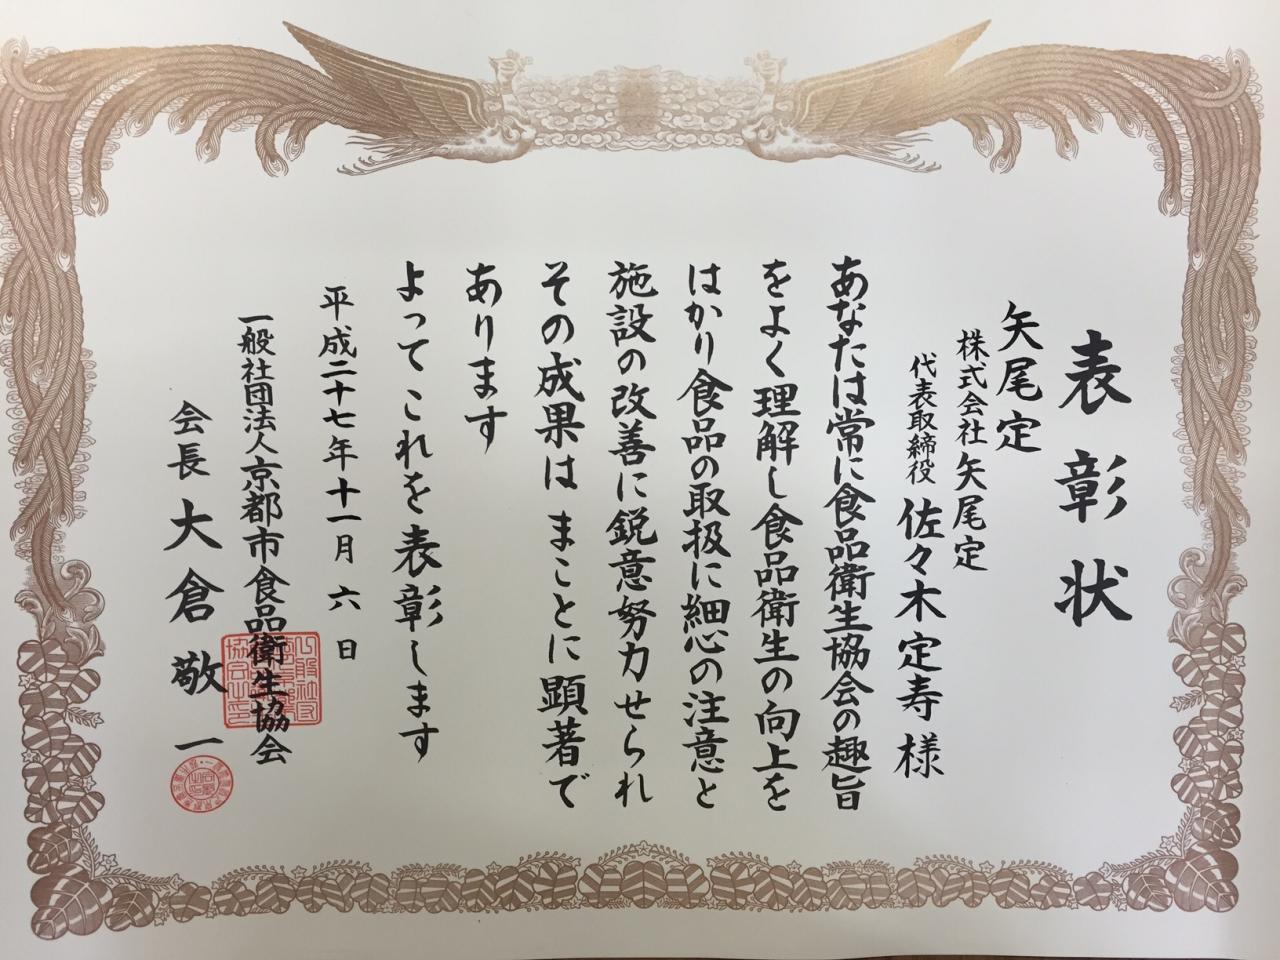 表彰状
矢尾定
株式会社矢尾定
代表取締役 佐々木定寿様
あなたは常に食品衛生協会の趣旨
をよく理解し食品衛生の向上を
はかり食品の取扱に細心の注意と
施設の改善に鋭意努力せられ
その成果は まことに顕著で
あります
よってこれを表彰します
平成二十七年十一月六日
一般社団法人京都市食品衛生協会
会長 大倉敬一